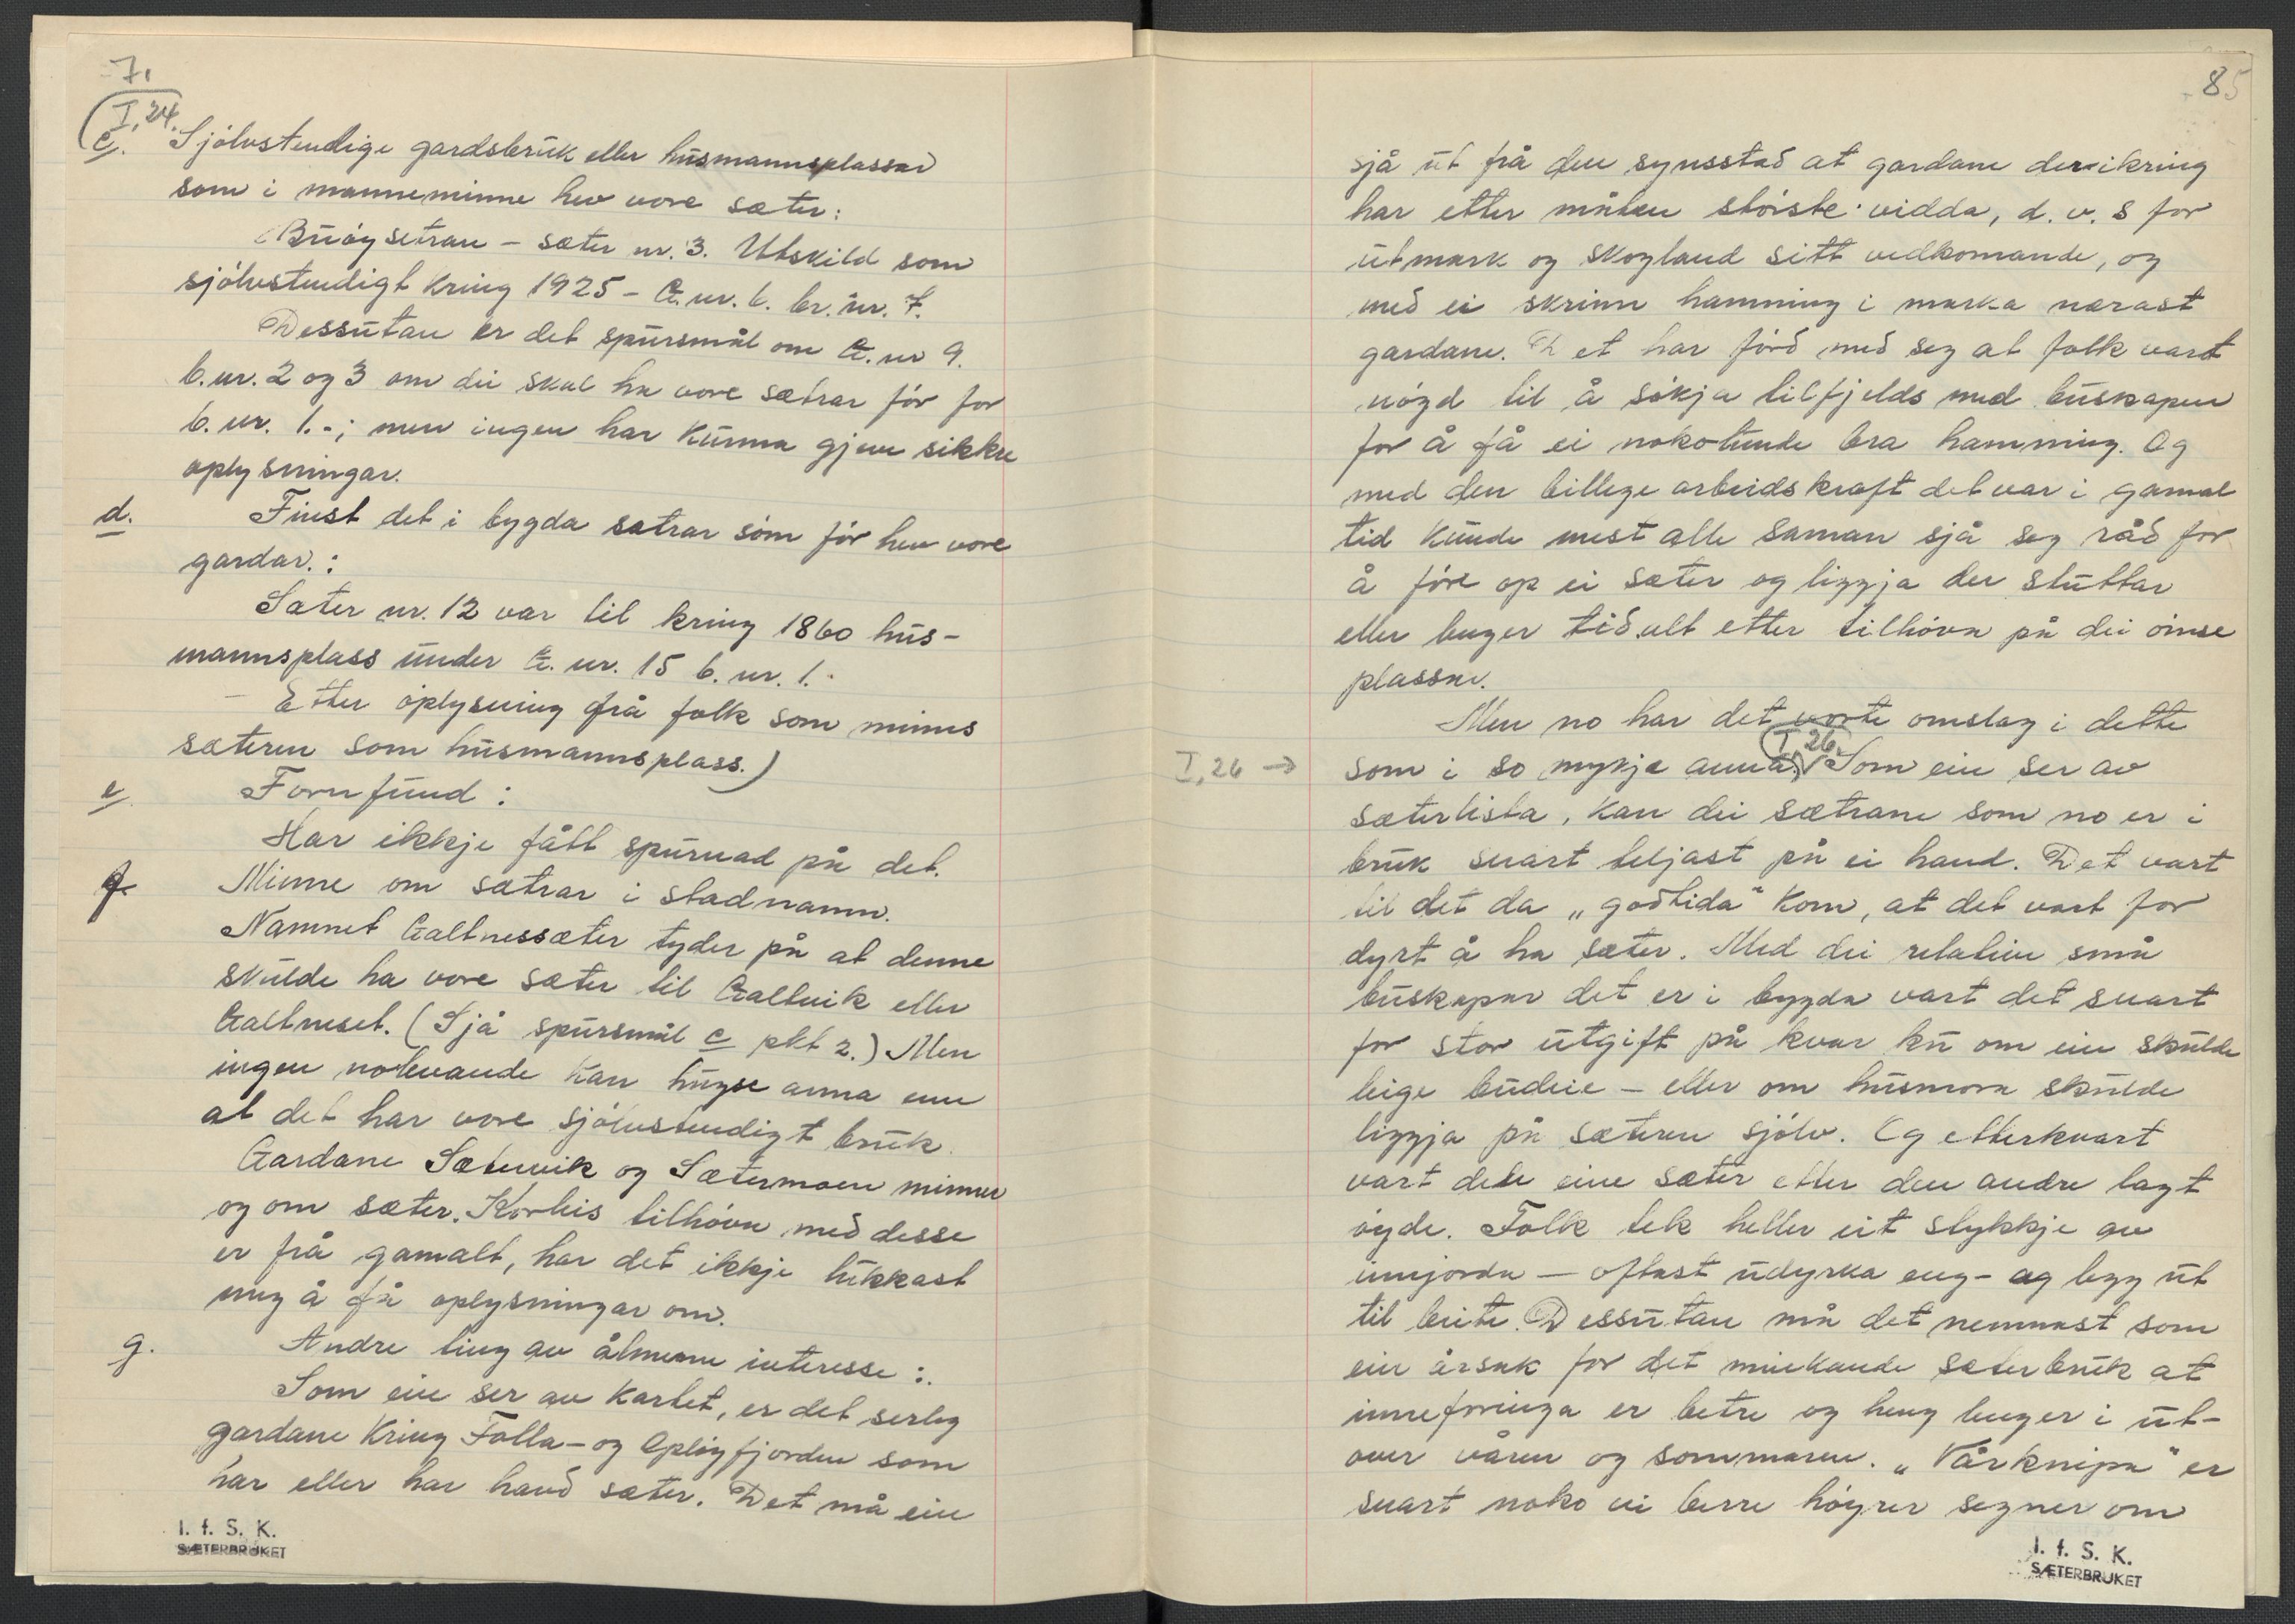 7.
I, 24.
c. Sjölvstendige gardsbruk eller husmannsplassar
som i manneminne hev vore sæter:
Buöysetran – sæter nr. 3. Utskild som
sjölvstendigt kring 1925 – G.nr. 6. br. nr. 7.
Dessutan er det spursmål om G. nr 9.
b. nr. 2 og 3 om dei skal ha vore sætrar för for
b. nr. 1.-; men ingen har kunna gjeve sikkre
oplysningar.
d. Finst det i bygda sætrar som för hev vore
gardar.:
Sæter nr. 12 var til kring 1860 hus-
mannsplass under G. nr. 15 b. nr. 1.
– Etter oplysning frå folk som minns
sæteren som husmannsplass.)
e. Fornfund:
Har ikkje fått spurnad på det.
f. Minne om sætrar i stadnamn.
Namnet Galtnessæter tyder på at denne
skulde ha vore sæter til Galtvik eller
Galtneset. (Sjå spursmål c pkt 2.) Men
ingen nolevande kan hugse anna enn
at det har vore sjölvstendigt bruk.
Gardane Sætervik og Sætermoen minner
og om sæter. Korleis tilhöva med desse
er frå gamalt, har det ikkje lukkast
meg å få oplysningar om.
g. Andre ting av ålmenn interesse:.
Som ein ser av kartet, er det serleg
gardane kring Folla- og Oplöyfjorden som
har eller har havd sæter. Det må ein
I. f. S. K.
SÆTERBRUKET
85
sjå ut frå den synsstad at gardane der ikring
har etter måten störste vidda, d. v. s for
utmark og skogland sitt vedkomande, og
med ei skrinn hamning i marka nærast
gardane. Det har förd med seg at folk vart
nöyd til å sökja tilfjelds med buskapen
for å få ei nokolunde bra hamning. Og
med den billege arbeidskraft det var i gamal
tid kunde mest alle saman sjå seg råd for
å före op ei sæter og liggja der stuttar
eller lenger tid alt etter tilhöva på dei öimse
plassar.
Men no har det vorte omslag i dette
I, 26 → som i so mykje anna. (I, 26) Som ein ser av
sæterlista, kan dei sætrane som no er i
bruk snart teljast på ei hand. Det vart
til det da „godtida" kom, at det vart for
dyrt å ha sæter. Med dei relative små
buskapar det er i bygda vart det snart
for stor utgift på kvar ku om ein skulde
leige budeie – eller om husmora skulde
liggja på sæteren sjölv. Og etterkvart
vart den eine sæter etter den andre lagt
öyde. Folk tek heller eit stykkje av
innjorda – oftast udyrka eng – og legg ut
til beite. Dessutan må det nemnast som
ein årsak for det minkande sæterbruk at
inneforinga er betre og heng lenger i ut-
over våren og sommaren. „Vårknipa" er
snart noko vi berre höyrer segner om
I. f. S. K.
SÆTERBRUKET